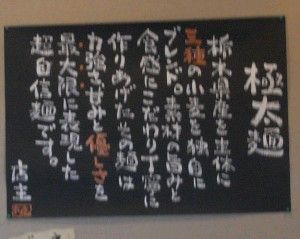 極太麺
栃木県産を主体に
三種の小麦を独自に
ブレンド。素材の旨みと
食感にこだわり丁寧に
作りあげたその麺は
力強さ甘み優しさを
最大限に表現した
超自信麺です。
店主